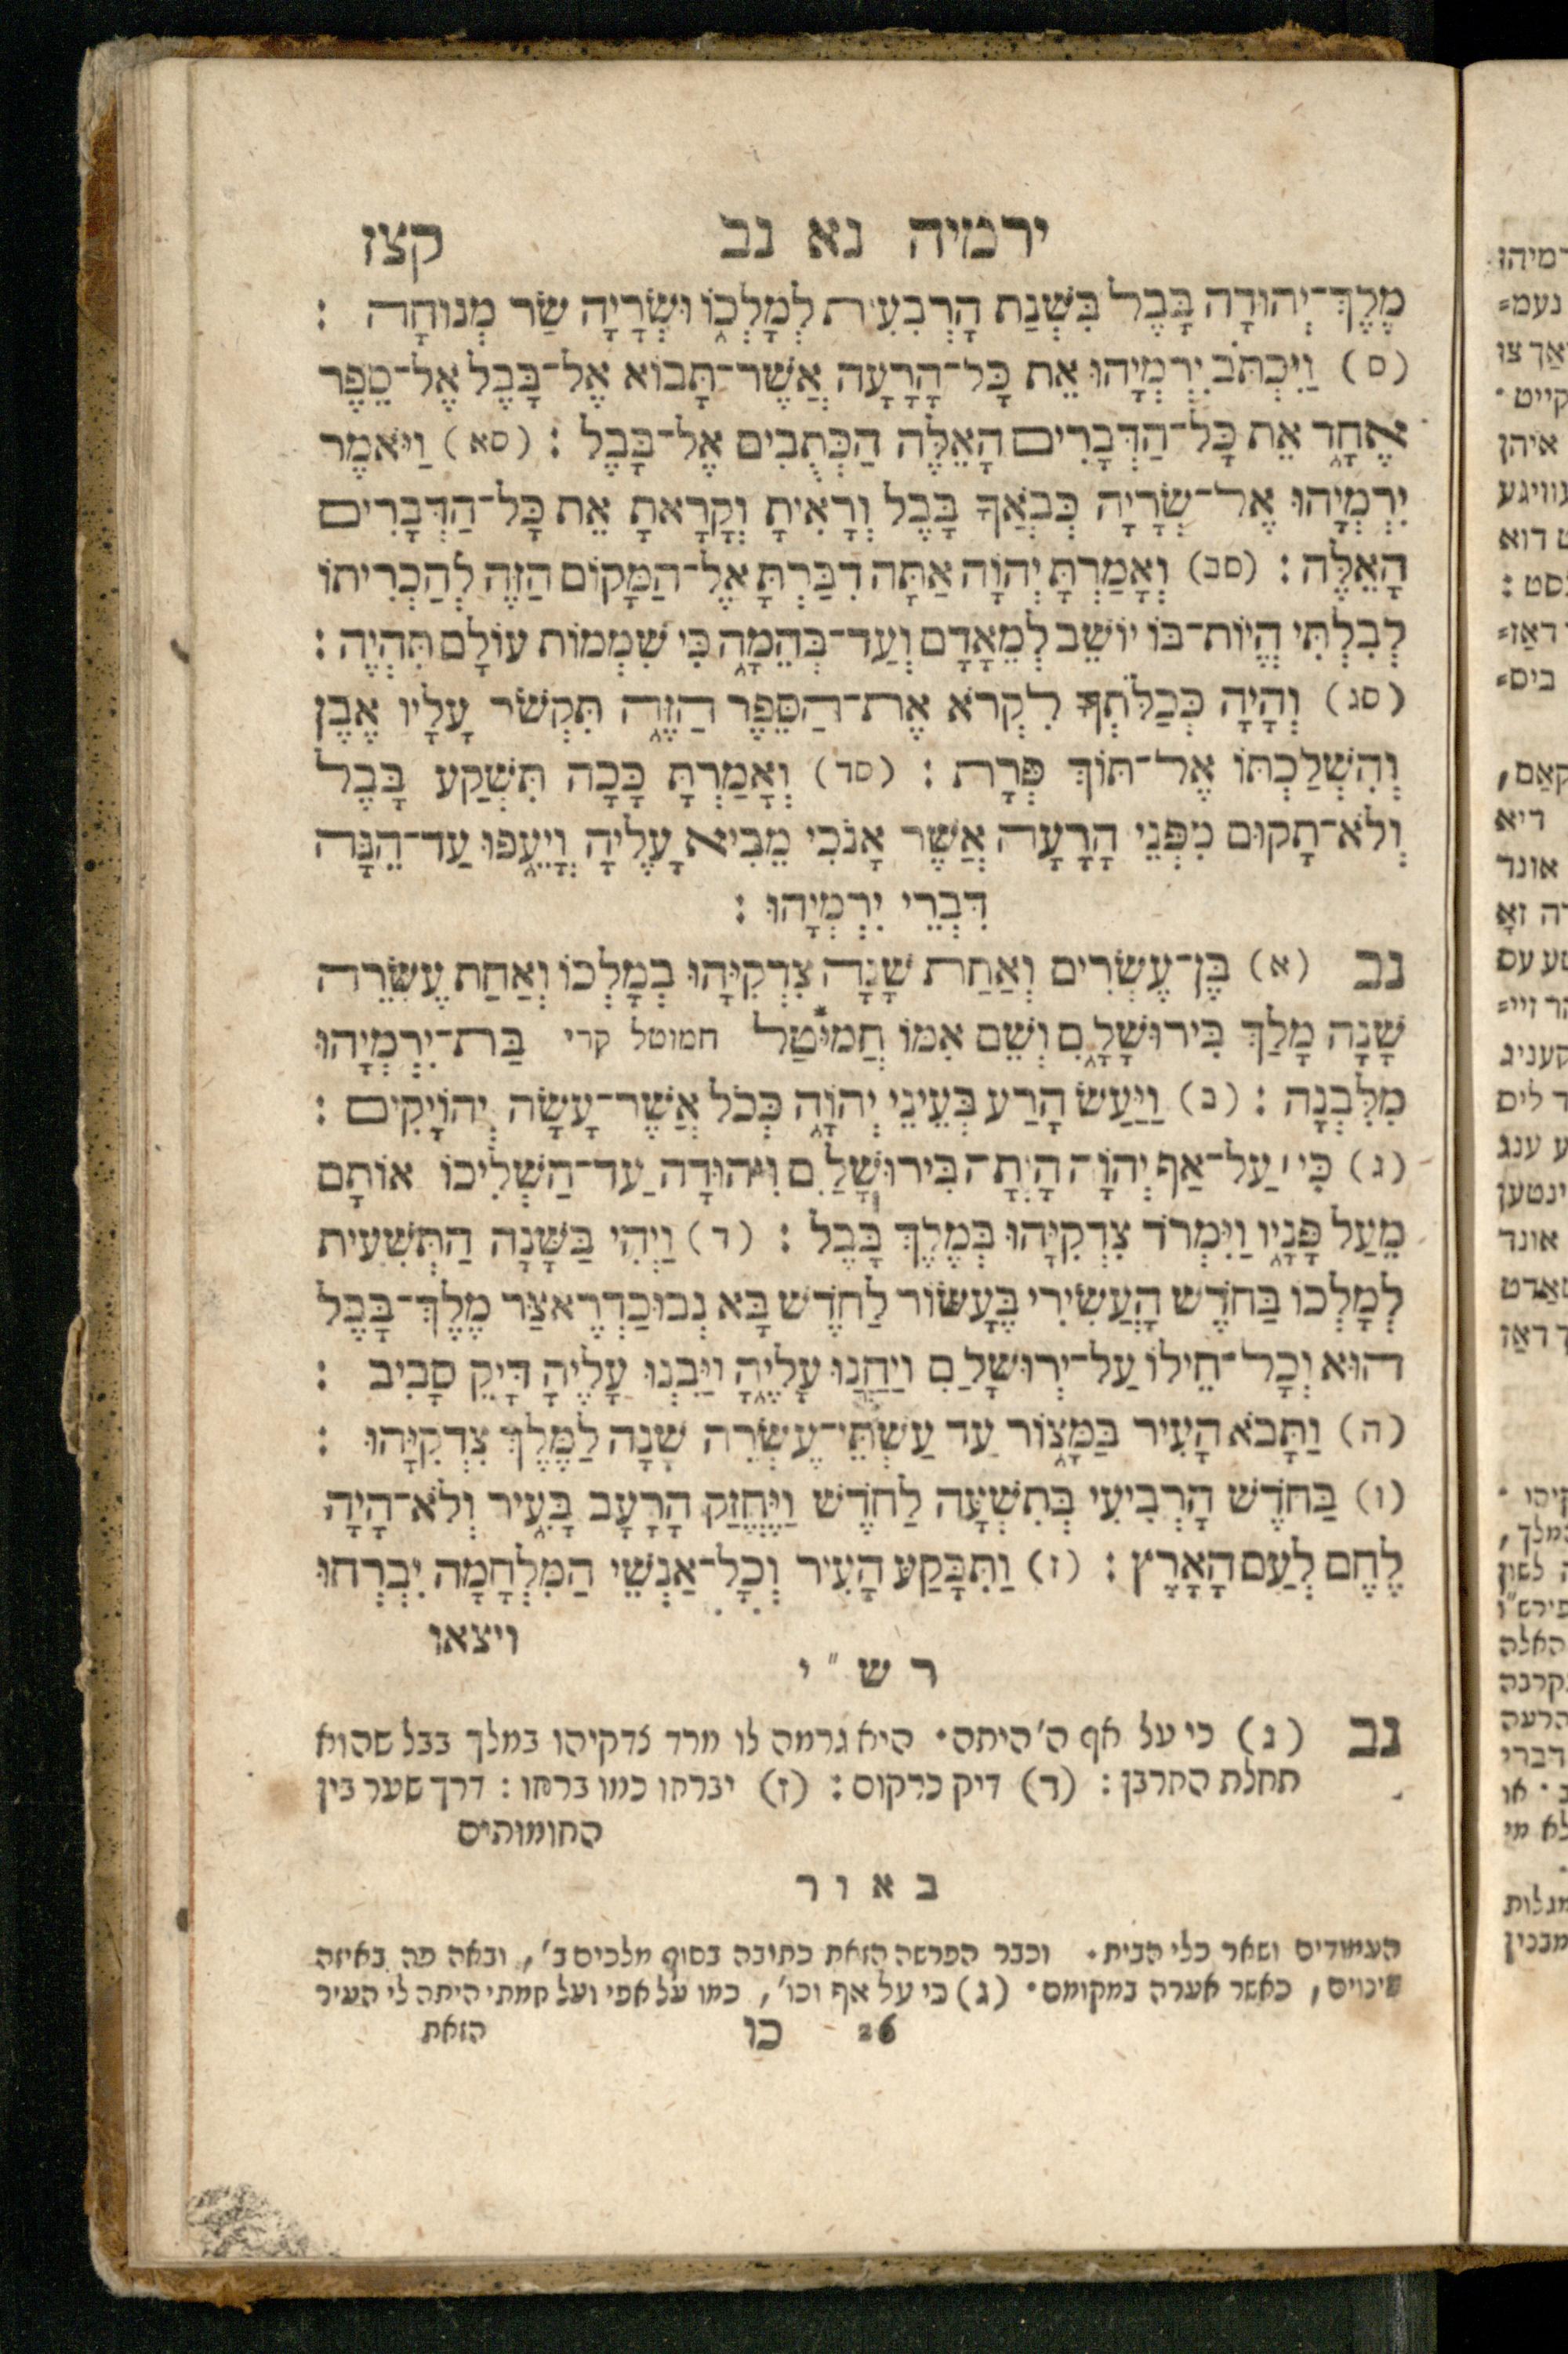 ירמיה נא נב קצז
מֶלֶךְ־יְהוּדָה בָּבֶל בִּשְׁנַת הָרְבִעִית לְמָלְכוֹ וּשְׂרָיָה שַׂר מְנוּחָה :
(ס) וַיִּכְתֹּב יִרְמְיָהוּ אֵת כָּל־הָרָעָה אֲשֶׁר־תָּבוֹא אֶל־בָּבֶל אֶל־סֵפֶר
אֶחָד אֵת כָּל־הַדְּבָרִים הָאֵלֶּה הַכְּתֻבִים אֶל־בָּבֶל : (סא) וַיֹּאמֶר
יִרְמְיָהוּ אֶל־שְׂרָיָה כְּבֹאֲךָ בָּבֶל וְרָאִיתָ וְקָרָאתָ אֵת כָּל־הַדְּבָרִים
הָאֵלֶּה : (סב) וְאָמַרְתָּ יְהוָֹה אַתָּה דִבַּרְתָּ אֶל־הַמָּקוֹם הַזֶּה לְהַכְרִיתוֹ
לְבִלְתִּי הֱיוֹת־בּוֹ יוֹשֵׁב לְמֵאָדָם וְעַד־בְּהֵמָה כִּי שִׁמְמוֹת עוֹלָם תִּהְיֶה :
(סג) וְהָיָה כְּכַלֹּתְךָ לִקְרֹא אֶת־הַסֵּפֶר הַזֶּה תִּקְשֹׁר עָלָיו אֶבֶן
וְהִשְׁלַכְתּוֹ אֶל־תּוֹךְ פְּרָת : (סד) וְאָמַרְתָּ כָּכָה תִּשְׁקַע בָּבֶל
וְלֹא־תָקוּם מִפְּנֵי הָרָעָה אֲשֶׁר אָנֹכִי מֵבִיא עָלֶיהָ וְיָעֵפוּ עַד־הֵנָּה
דִּבְרֵי יִרְמְיָהוּ :
נב (א) בֶּן־עֶשְׂרִים וְאַחַת שָׁנָה צִדְקִיָּהוּ בְמָלְכוֹ וְאַחַת עֶשְׂרֵה
שָׁנָה מָלַךְ בִּירוּשָׁלִָם וְשֵׁם אִמּוֹ חֲמיּטַל חמוטל קרי בַּת־יִרְמְיָהוּ
מִלִּבְנָה : (ב) וַיַּעַשׂ הָרַע בְּעֵינֵי יְהוָֹה כְּכֹל אֲשֶׁר־עָשָׂה יְהוֹיָקִים :
(ג) כִּי עַל־אַף יְהוָֹה הָיְתָה בִּירוּשָׁלִַם וִיהוּדָה עַד־הִשְׁלִיכוֹ אוֹתָם
מֵעַל פָּנָיו וַיִּמְרֹד צִדְקִיָּהוּ בְּמֶלֶךְ בָּבֶל : (ד) וַיְהִי בַשָּׁנָה הַתְּשִׁעִית
לְמָלְכוֹ בַּחֹדֶשׁ הָעֲשִׂירִי בֶּעָשׂוֹר לַחֹדֶשׁ בָּא נְבוּכַדְרֶאצַּר מֶלֶךְ־בָּבֶל
הוּא וְכָל־חֵילוֹ עַל־יְרוּשָׁלִַם וַיַּחֲנוּ עָלֶיהָ וַיִּבְנוּ עָלֶיהָ דָּיֵק סָבִיב :
(ה) וַתָּבֹא הָעִיר בַּמָּצוֹר עַד עַשְׁתֵּי־עֶשְׂרֵה שָׁנָה לַמֶּלֶךְ צִדְקִיָּהוּ :
(ו) בַּחֹדֶשׁ הָרְבִיעִי בְּתִשְׁעָה לַחֹדֶשׁ וַיֶּחֱזַק הָרָעָב בָּעִיר וְלֹא־הָיָה
לֶחֶם לְעַם הָאָרֶץ : (ז) וַתִּבָּקַע הָעִיר וְכָל־אַנְשֵׁי הַמִּלְחָמָה יִבְרְחוּ
ויצאו
רש"י
נב (ג) כי על אף ה' היתה. היא גרמה לו מרד צדקיהו במלך בבל שהוא
תחלת החרבן : (ד) דיק כרקום : (ז) יברחו כמו ברחו : דרך שער בין
החומותים
באור
העמודים ושאר כלי הבית. וכבר הפרשה הזאת כתובה בסוף מלכים ב', ובאה פה באיזה
שינוים, כאשר אערה במקומם. (ג) כי על אף וכו', כמו על אפי ועל חמתי היתה לי העיר
26 כו הזאת